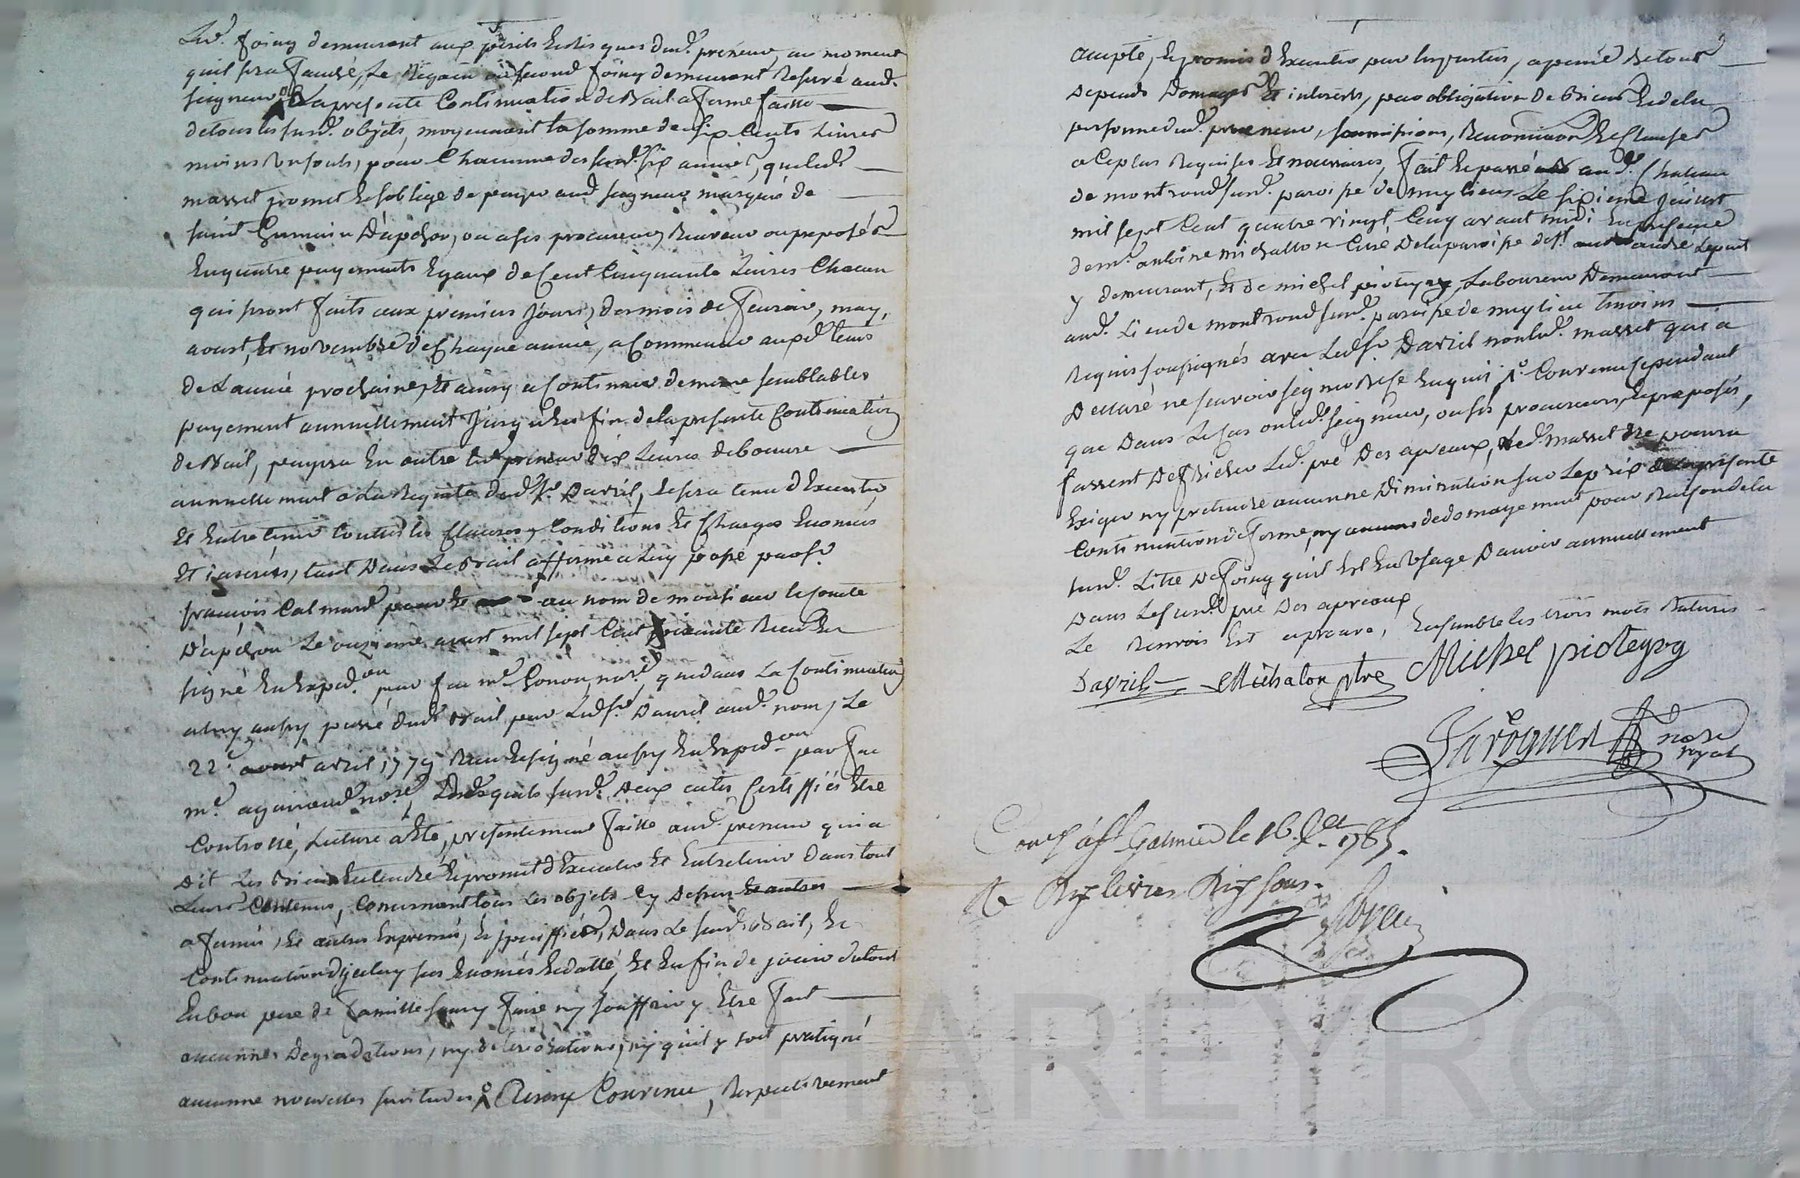 Led. foing demeurant aux périls et risques dud. preneur, au moment
quil sera fauché, le Regain ou second foing demeurant Reservé aud.
seigneur, la présente Continuation de Bail a ferme faitte
de tous les susd. objets, moyennant la somme de six Cents Livres
moins un souls, pour Chacune des susd. six années, que led.
masset promet et soblige de payer aud. seigneur marquis de
saint Germain D'apchon, ou a ses procureurs Receveur ou preposés
En quatre payements Egaux de Cent Cinquante Livres Chacun
qui seront faits aux premiers jours, des mois de fevrier, may,
aoust, et novembre de Chaque année, a Commencer auxd. tems
de Lannée prochaine, et ainsy a Continuer de même semblables
payement annuellement jusqu'à la fin de la présente Continuation
de Bail, payera En outre led. preneur dix Livres
annuellement a la Requete dud. sr. Davril, sera tenu d'Executer
Et Entretenir toutes les Clauses, Conditions et Charges Enoncés
Et inserées, tant Dans Le Bail a fferme a luy passé par sr.
françois Calmard au nom de monsieur le Comte
D'apchon Le onzieme avant mil sept Cent soixante Receu Et
signé En Exped.on par feu me. Gonon no.re que dans La Continuation
a luy aussy passé dud. Bail par Led. sr. Davril aud. nom, Le
22e. avril 1779 Receu et signé aussy En Exped.on par feu
me. no.re Lesd. susd. Deux actes Certiffiés Etre
Controllé, Lecture a Eté, présentement faitte aud. preneur qui a
Dit Les Bien Entendre Et promet d'Executer Et Entretenir dans tout
Leurs Contenus, Concernant tous Les objets Cy Dessus Et autres
afermés, Et autres Exprimés, Et speciffiés, Dans Le susd. Bail, Et
Continuation d'jceluy sus Enoncés Et datté, Et Enfin de jouir du tout
En bon pere de famille sans y faire ny souffrir y Etre fait
aucunnes Degradations, ny deteriorations, ny quil y soit pratiqué
aucunne nouvelles servitudes, Ainsy Convenu, Respectivement
accepté, Et promis d'Executer par Les parties, a peine de tous
Depends Domages Et interests, par obligation De biens Et de la
personne dud. preneur, soumissions, Renonciations Et Clauses
a Ce plus Requises Et necessaires, fait Et passé aud. Chateau
de montrond susd. paroisse de meylieu Le sixieme jour
mil sept Cent quatre vingt Cinq avant midi En presence
de mre. antoine michalon Curé De la paroisse de st. andré Le puit
y demeurant, Et de michel pioteyry Laboureur Demeurant
aud. Lieu de montrond susd. paroisse de meylieu temoins
Requis soussignés avec Led. sr. Davril non led. masset qui a
Declaré ne scavoir signer De ce Enquis Convenu Cependant
que Dans Le Cas ou led. seigneur, ou ses procureurs, Et preposés,
fassent Defricher Led. pré Des apreaux, Led. masset Ne pourra
Exiger ny pretendre aucunne Diminution sur Le prix De la présente
Continuation de ferme, ny dedomagement pour Raison de la
susd. Litre De foing quil Est En Usage D'avoir annuellement
Dans Le susd. pré Des apreaux
Le Renvois Est aprouvé, Ensemble les trois mots Raturés
Davril Michalon ptre Michel pioteyry
Faroguer nore
royal
Conlé. à st Galmier le 16. 1785.
R Dix livres Dix sous.